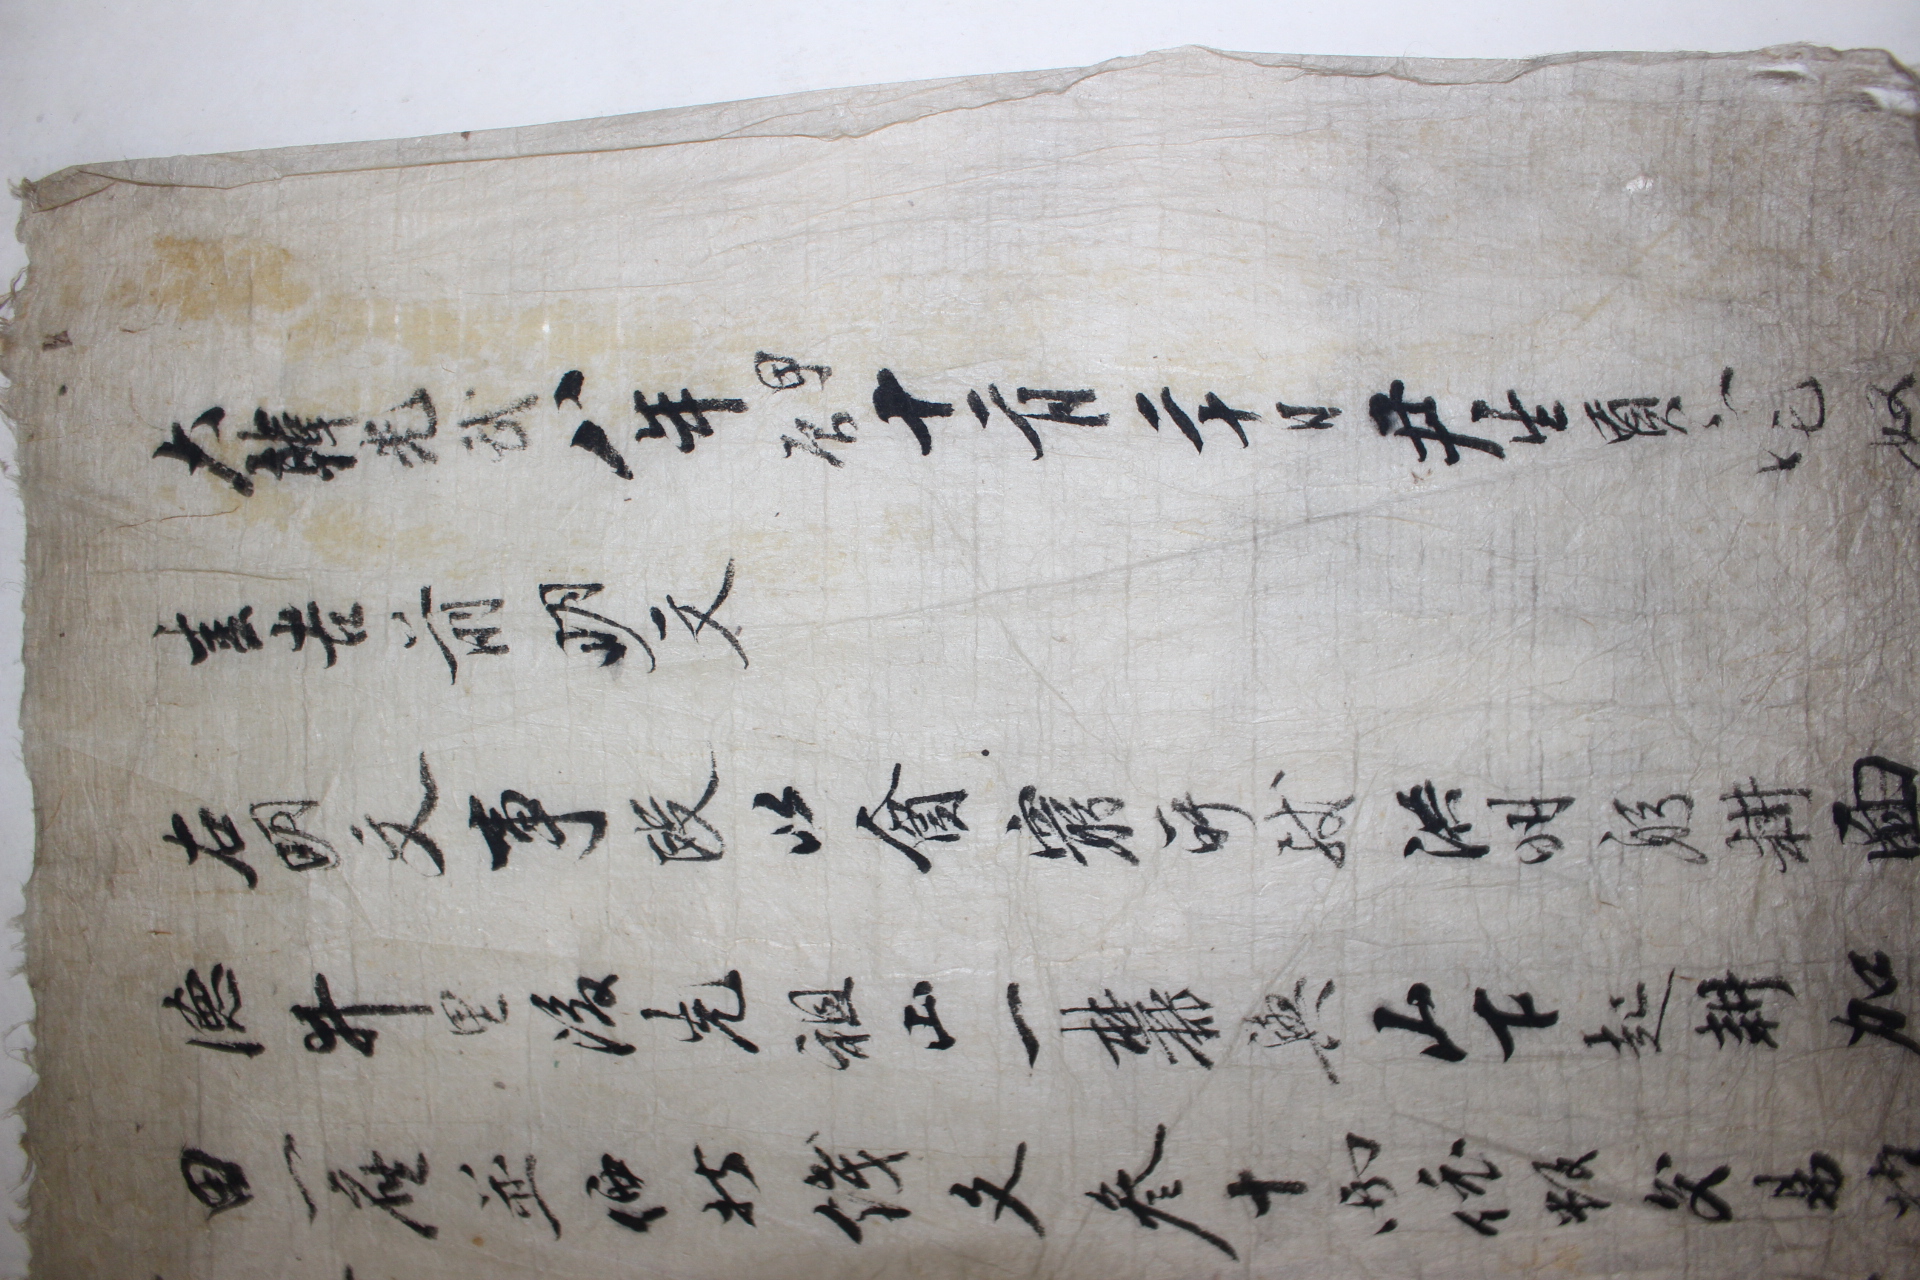 大韓光武八年甲辰十二月二十日尹生員宅奴
圭吉前明文
右明文事段以貧窮所致洪明躬耕面
德井里後先祖山一麓與山下起耕加
田一座並価折錢文叄十兩依數交易